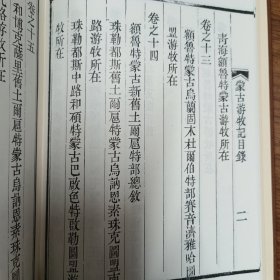 蒙古游牧記目錄
二
青海額魯特蒙古游牧所在
卷之十三
額魯特蒙古烏蘭固木杜爾伯特部賽音濟雅哈圖
盟游牧所在
卷之十四
額魯特蒙古新舊土爾扈特部總敘
珠勒都斯舊土爾扈特蒙古烏訥恩素珠克圖盟南
路游牧所在
珠勒都斯中路和碩特蒙古巴啟色特啟勒圖盟游
牧所在
卷之十五
舊土爾扈特蒙古烏訥恩素珠克圖
路游牧所在